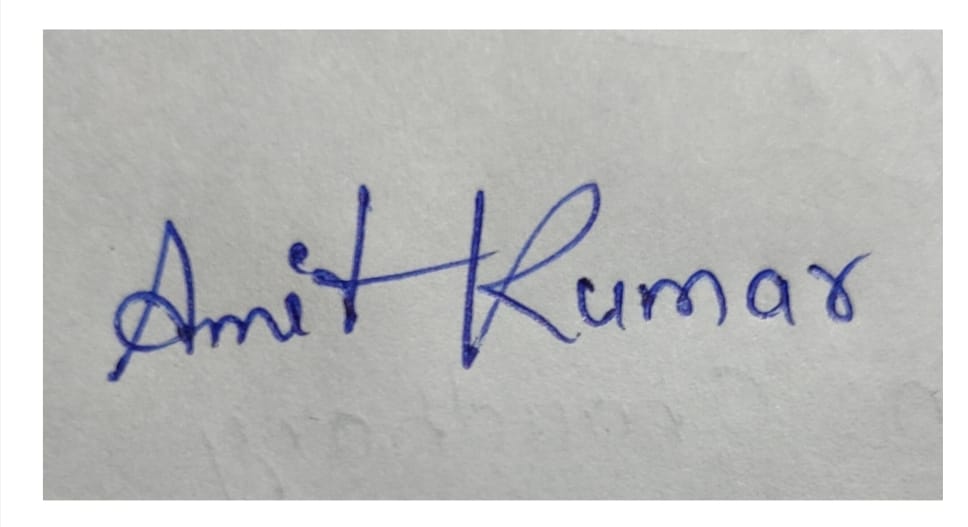 Amit Kumar